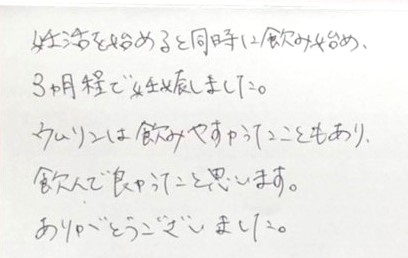 妊活を始めると同時に飲み始め、
3ヵ月程で妊娠しました。
ウムリンは飲みやすかったこともあり、
飲んで良かったと思います。
ありがとうございました。